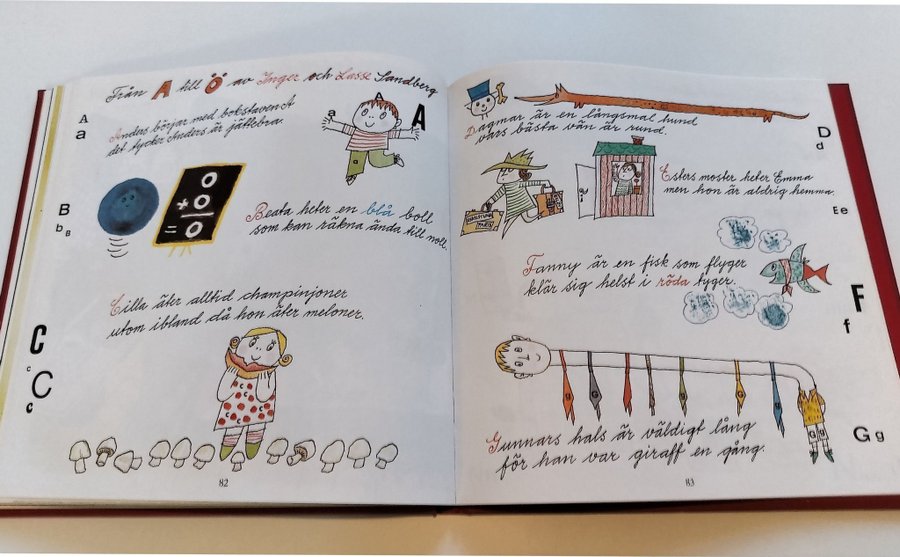 Från A till Ö av Inger och Lasse Sandberg
A
a
Anders börjar med bokstaven A
det tycker Anders är jättebra.
a A
B
b B
0
+0
=0
Beata heter en blå boll
som kan räkna ända till noll.
Cilla äter alltid champinjoner
utom ibland då hon äter meloner.
C
c
C
c
82
Dagmar är en långsmal hund
vars bästa vän är rund.
D
d
Esters moster heter Emma
men hon är aldrig hemma.
Ee
Fanny är en fisk som flyger
klär sig helst i röda tyger.
F
f
Gunnars hals är väldigt lång
för han var giraff en gång.
G g
83